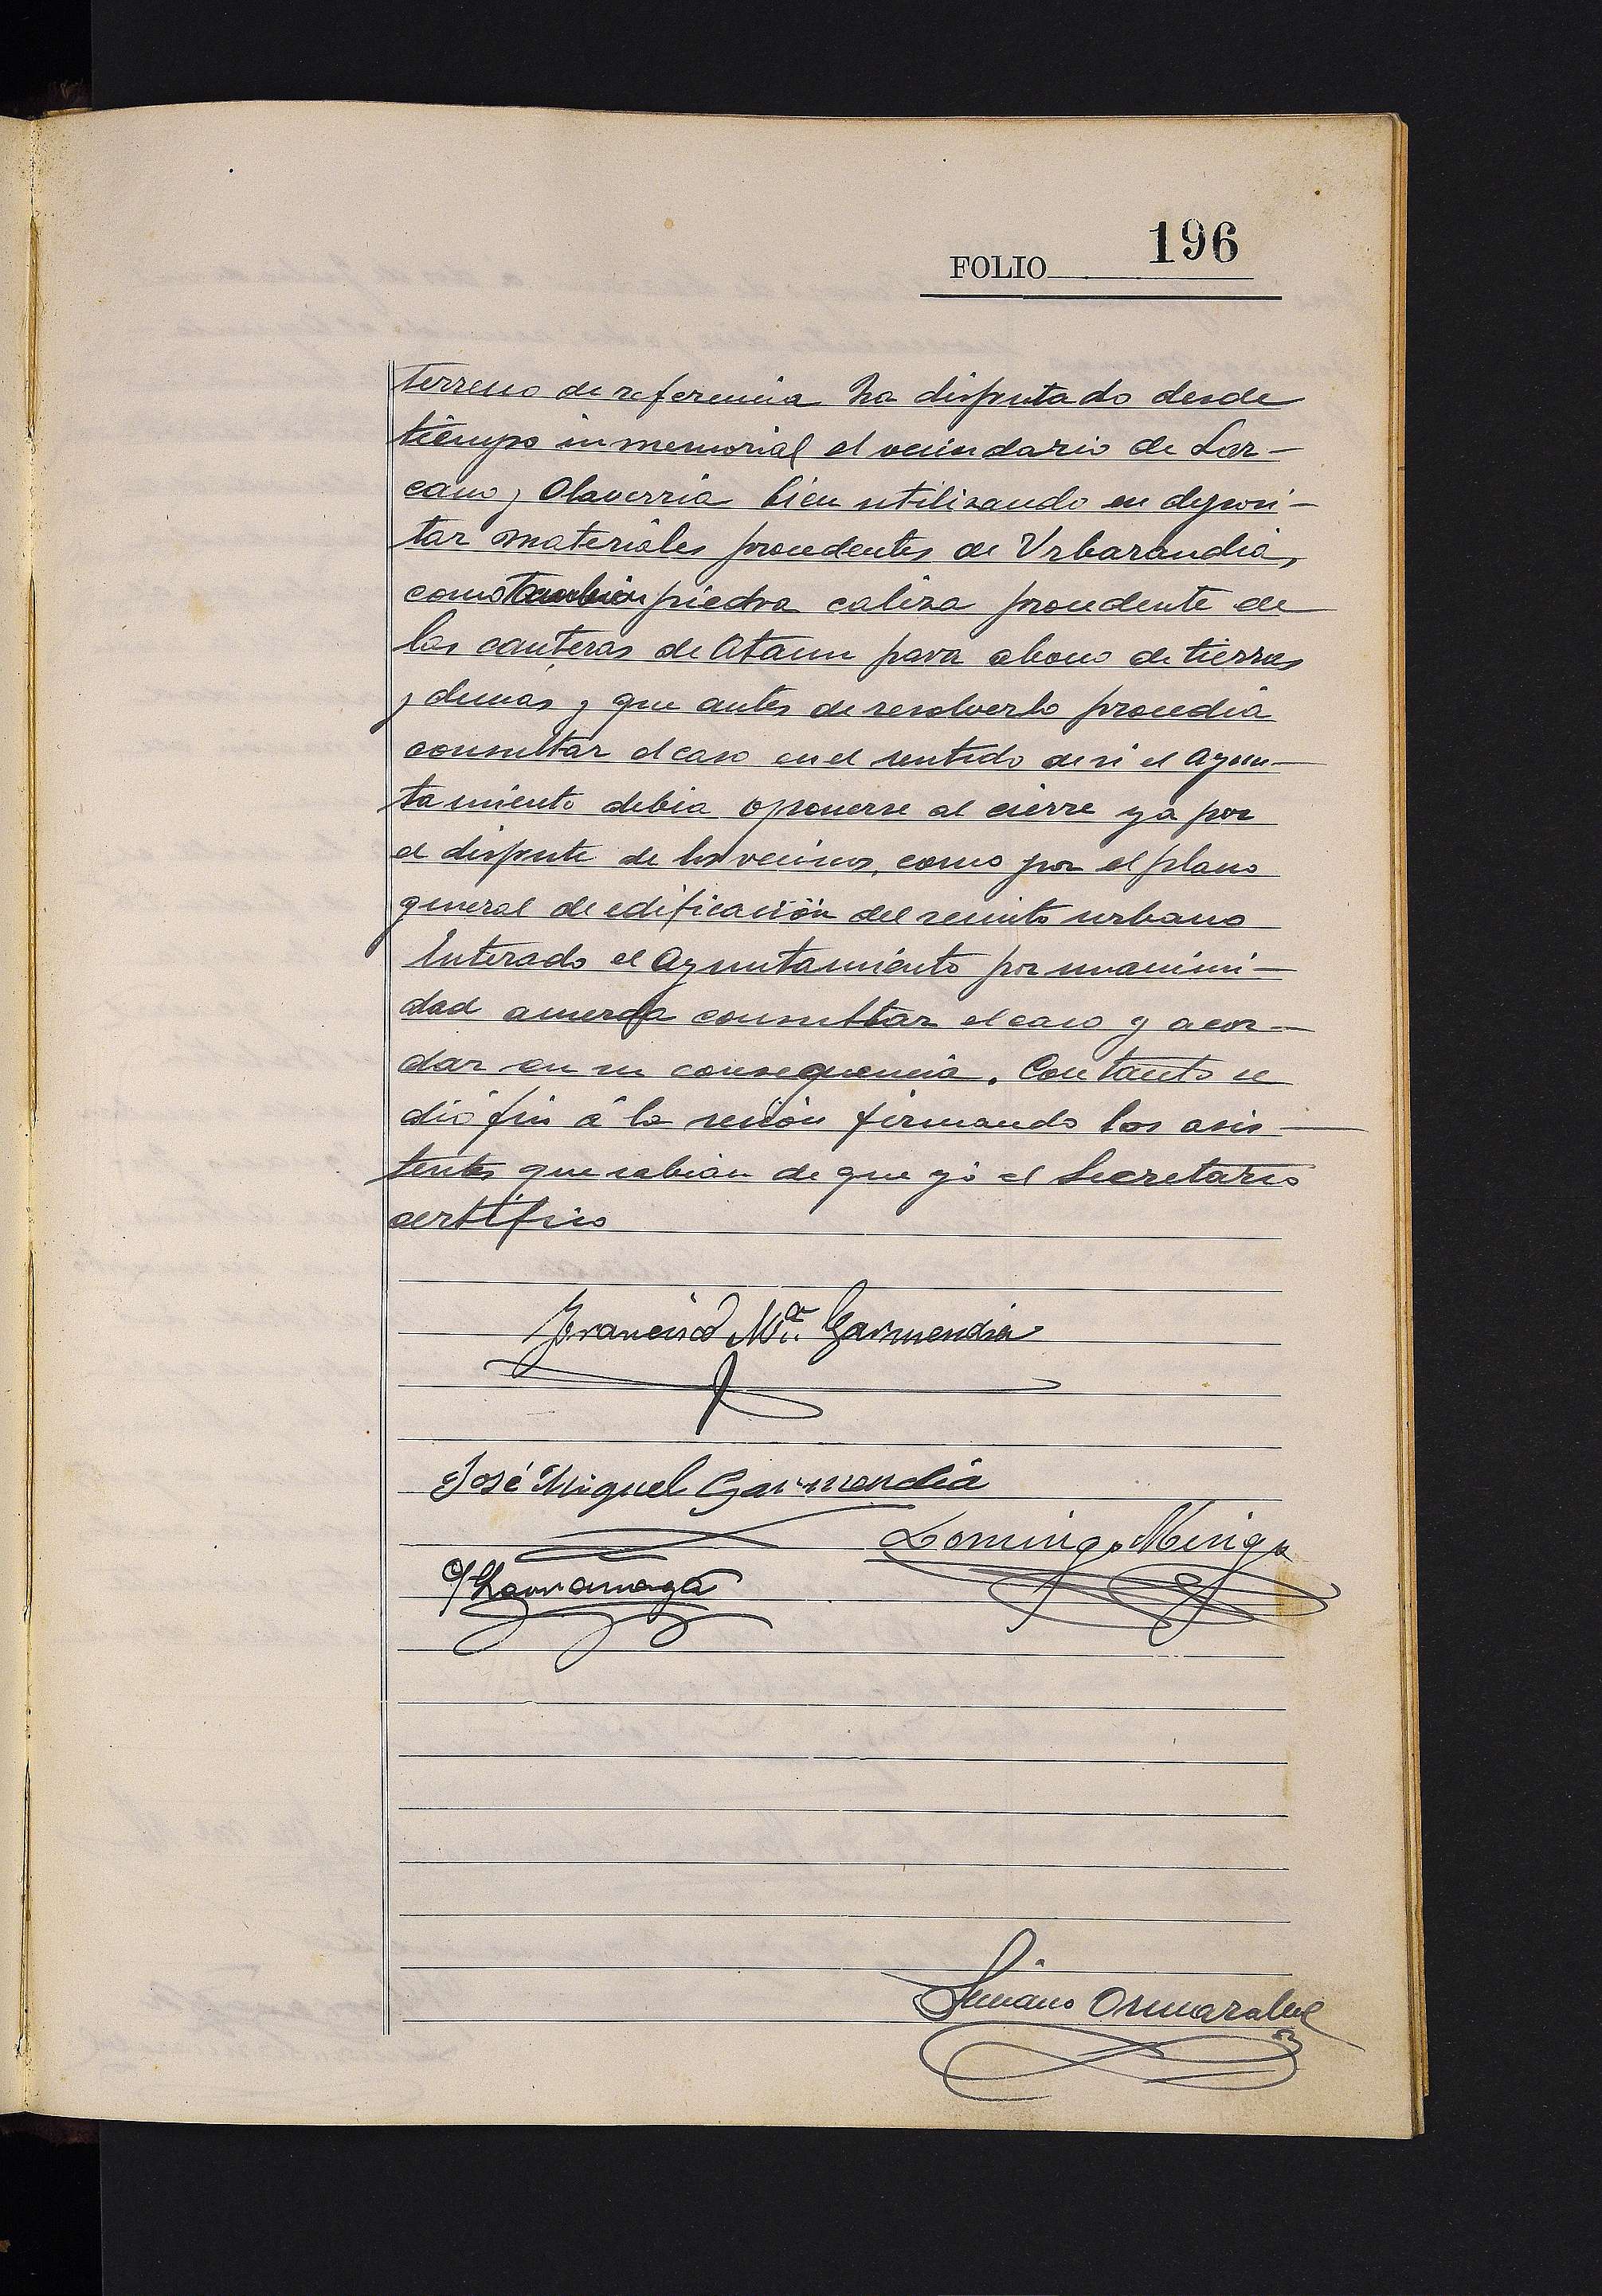 FOLIO 196
terreno de referencia ha disfrutado desde
tiempo inmemorial el vecindario de Laz-
cano y Olaverria bien utilizando en deposi-
tar materiales procedentes de Urbarandia,
como tambien piedra caliza procedente de
las canteras de Ataun para abono de tierras
y demas y que antes de resolverlo procedia
consultar el caso en el sentido de si el Ayun-
tamiento debia oponerse al cierre ya por
el disfrute de los vecinos, como por el plano
general de edificación del recinto urbano
Enterado el Ayuntamiento por unanimi-
dad acuerda consultar el caso y acor-
dar en su consequencia. Con tanto se
dió fin á la sesión firmando los asis-
tentes que sabian de que yó el Secretario
certifico
Francisco Mª Garmendia
José Miguel Garmendia
Domingo